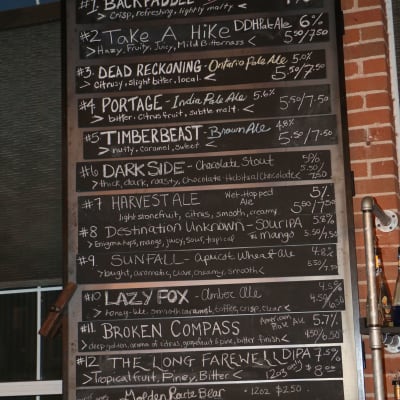 #1. BACKPADDLE
> Crisp, refreshing, lightly malty
#2 TAKE A HIKE DDH Pale Ale 6%
> Hazy, Fruity, Juicy, Mild Bitterness < 5.50/7.50
#3. DEAD RECKONING - Ontario Pale Ale 5.0%
> Citrusy, slight bitter, local < 5.50/7.50
#4 PORTAGE - India Pale Ale 5.6%
> bitter, citrus fruit, subtle malt < 5.50/7.50
#5 TIMBERBEAST - Brown Ale 4.8%
> nutty, caramel, sweet < 5.50/7.50
#6 DARK SIDE - Chocolate Stout 5%
> thick, dark, roasty, Chocolate Habitual Chocolate < 5.50/7.50
#7 HARVEST ALE Wet-Hopped Ale 5%
light stonefruit, citrus, smooth, creamy 5.50/7.50
#8 Destination Unknown - Sour IPA 5.8%
> Enigma hops, mango, juicy, sour, tropical mango 5.50/7.50
#9 SUNFALL - Apricot Wheat Ale 4.8%
> bright, aromatic, clove, creamy, smooth < 5.50/7.50
#10 LAZY FOX - Amber Ale 4.5%
> honey-like, smooth caramel, toffee, crisp, clear < 4.50/6.50
#11 BROKEN COMPASS American Pale Ale 5.7%
> deep golden, aroma of citrus, grapefruit & pine, bitter finish < 4.50/6.50
#12 THE LONG FAREWELL DIPA 7.5%
> Tropical fruit, Piney, Bitter < 12oz only $8.00
Molden Route Bear • 12oz $2.50